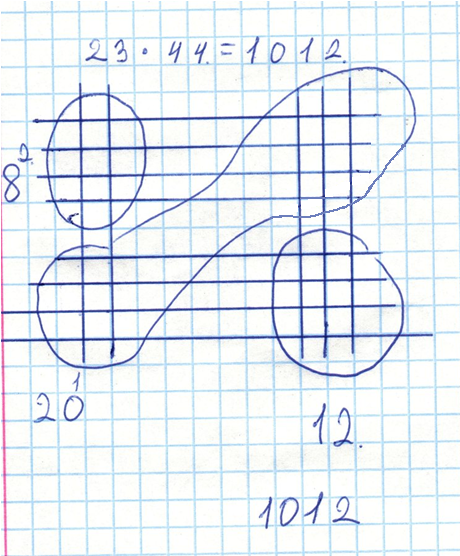 23 · 44. = 1012.
8²
20¹
12.
1012